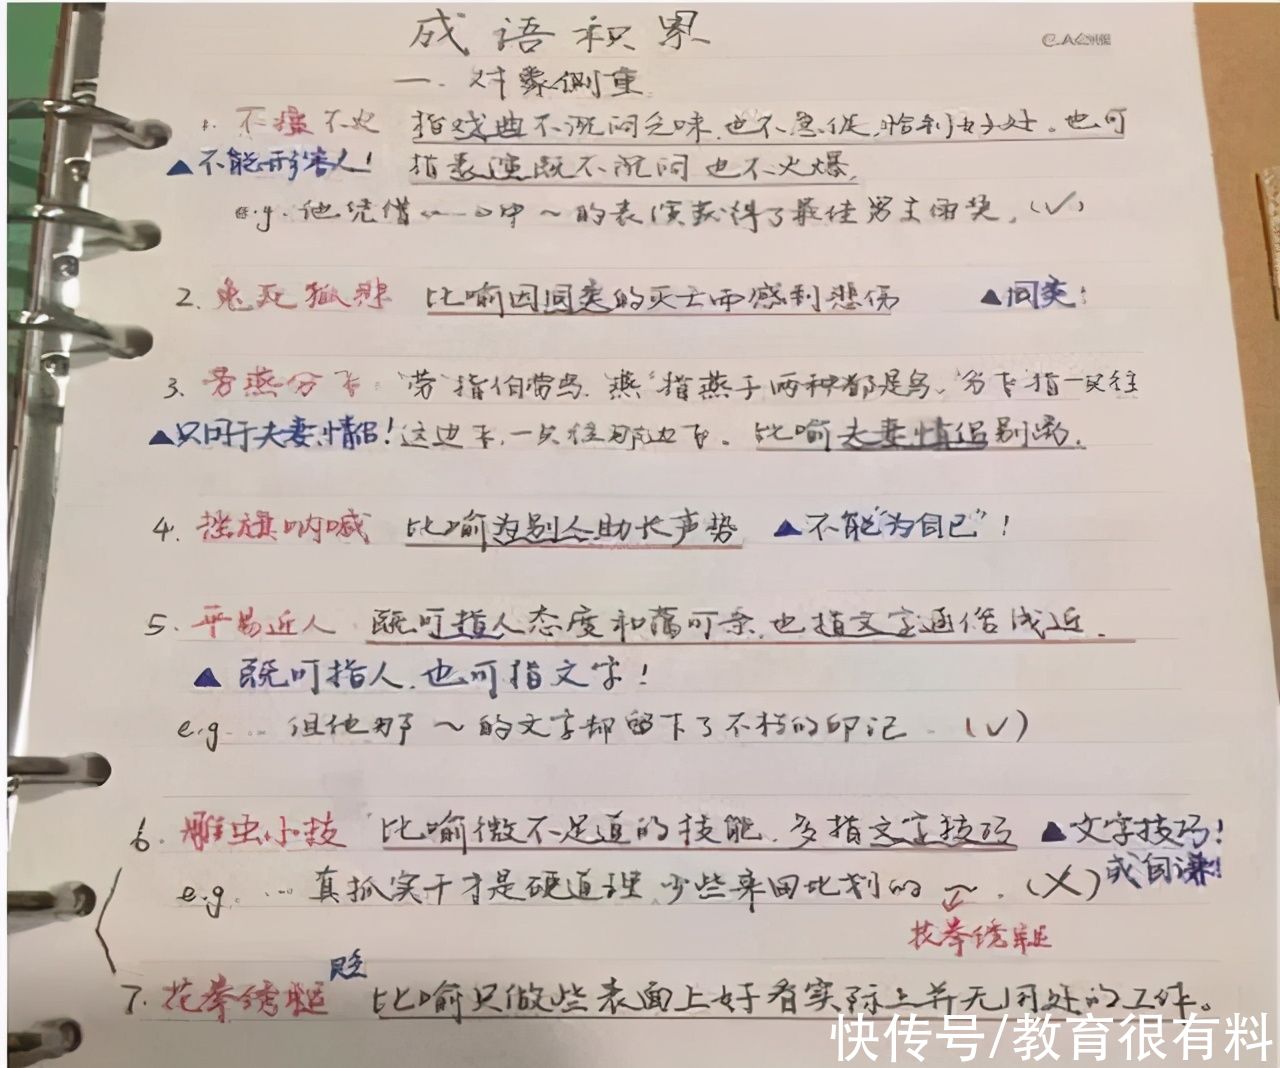 成语积累
一. 对象侧重
1. 不瘟不火 指戏曲不沉闷乏味,也不急促,恰到好处。也可
▲不能形容人! 指表演既不沉闷也不火爆.
e.g. 他凭借《……》中~的表演获得了最佳男主角奖. (√)
2. 兔死狐悲 比喻因同类的灭亡而感到悲伤 ▲同类!
3. 劳燕分飞: "劳"指伯劳鸟. "燕"指燕子两种都是鸟. "分飞"指一只往
▲只用于夫妻、情侣! 这边飞,一只往那边飞。比喻夫妻情侣别离.
4. 摇旗呐喊 比喻为别人助长声势 ▲不能"为自己"!
5. 平易近人 既可指人态度和蔼可亲,也指文字通俗浅近.
▲ 既可指人,也可指文字!
e.g. … 但他那~的文字却留下了不朽的印记. (√)
6. 雕虫小技 比喻微不足道的技能,多指文字技巧 ▲文字技巧!
或自谦!
e.g. … 真抓实干才是硬道理,少些来回比划的~. (×)
花拳绣腿
贬
7. 花拳绣腿 比喻只做些表面上好看实际上并无用处的工作。
快传号/教育很有料